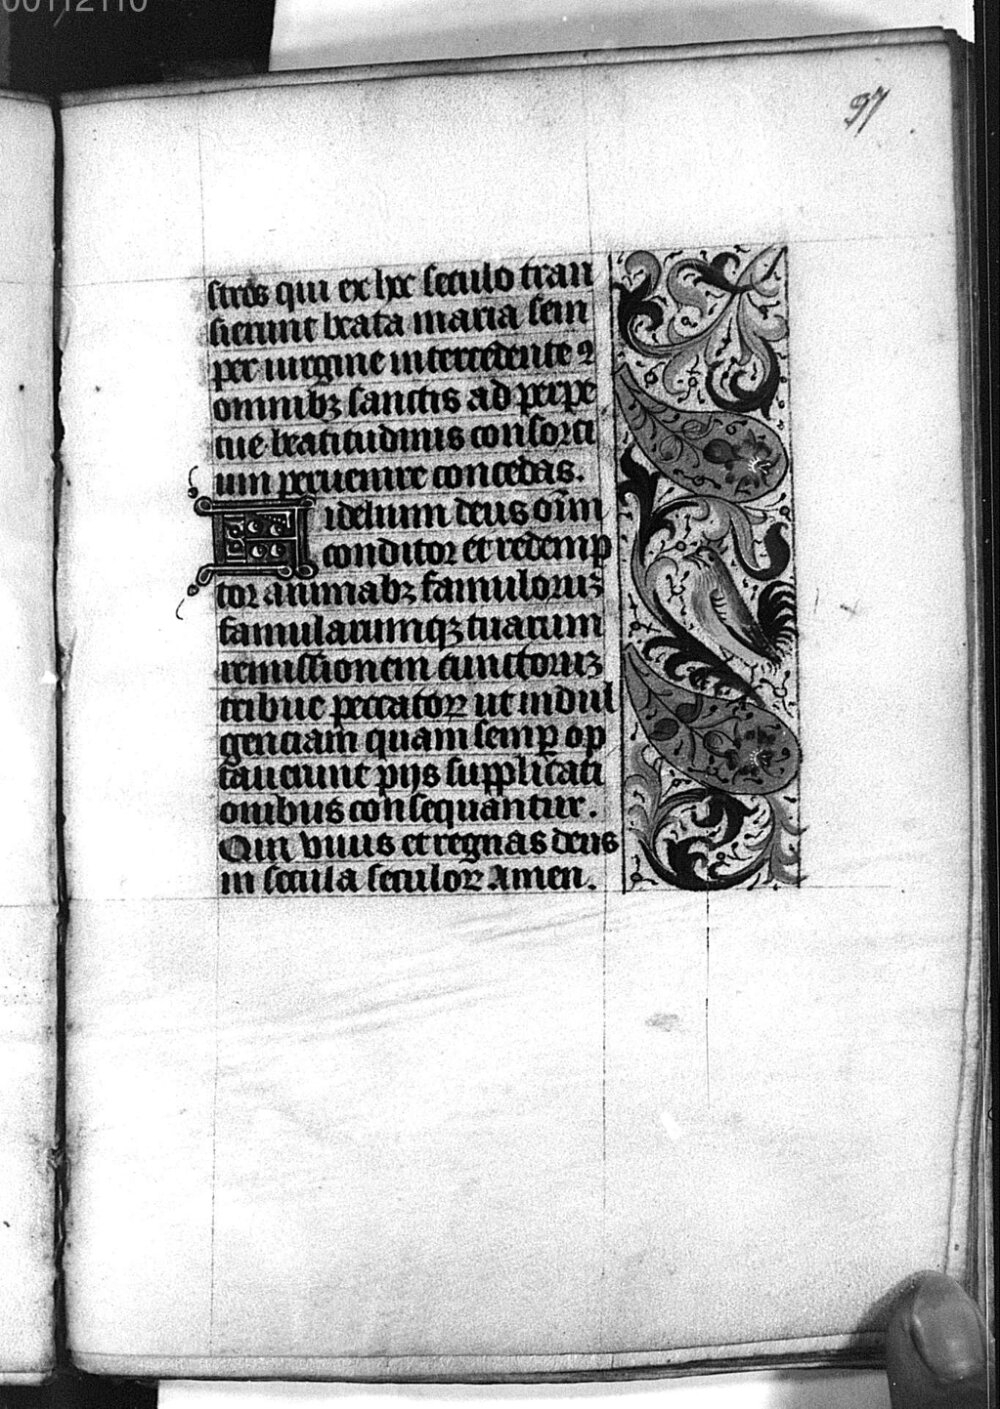 00112110
97
stros qui ex hoc seculo tran
sierunt beata maria sem
per uirgine intercedente ⁊
omnibꝫ sanctis ad perpe
tue beatitudinis consorci
um peruenire concedas.
Fidelium deus oīm
conditor et redemp
tor animabꝫ famuloruꝫ
famularumqꝫ tuarum
remissionem cunctoruꝫ
tribue peccatoꝝ ut indul
genciam quam semꝑ op
tauerunt pijs supplicati
onibus consequantur.
Qui viuis et regnas deus
in secula seculoꝝ Amen.